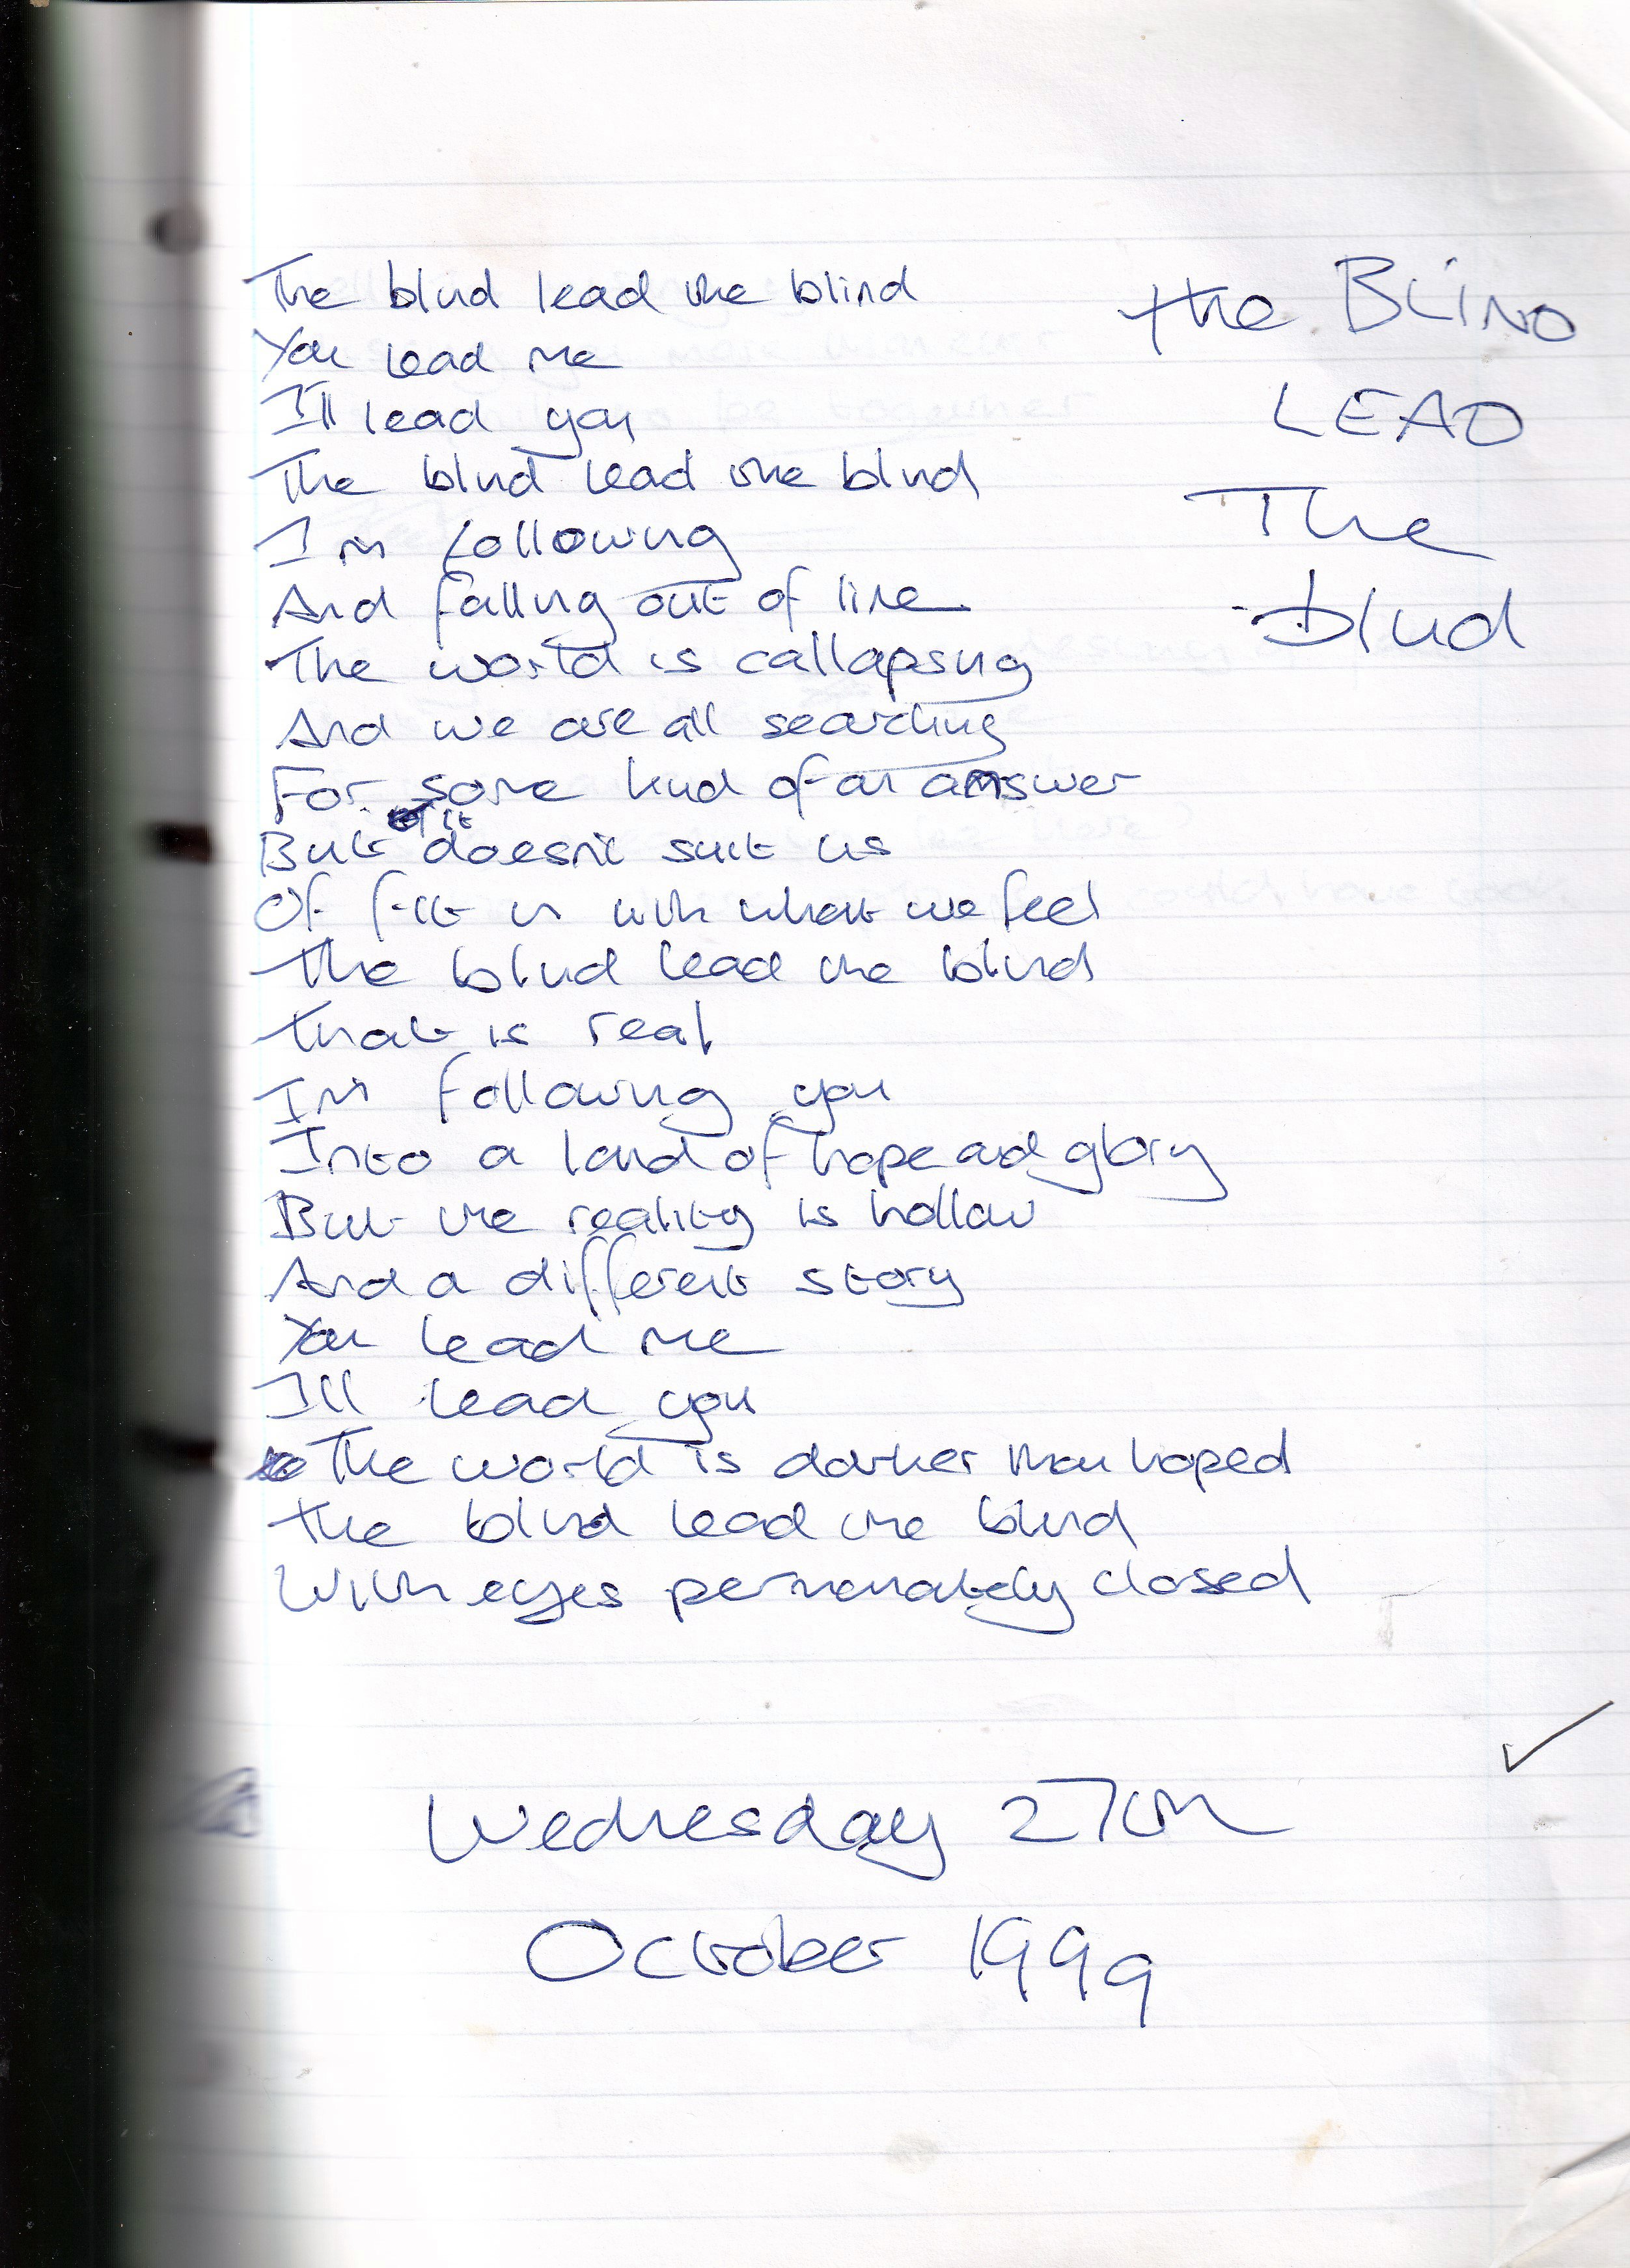 The blind lead the blind
You lead me
I'll lead you
The blind lead the blind
Im following
And falling out of line
The world is callapsing
And we are all searching
For some kind of an answer
But it doesnt suit us
Of fit in with what we feel
The blind lead the blind
That is real
Im following you
Into a land of hope and glory
But the reality is hollow
And a different story
You lead me
Ill lead you
The world is darker than hoped
The blind lead the blind
With eyes permenately closed
the BLiND
LEAD
The
blind
Wednesday 27th
October 1999